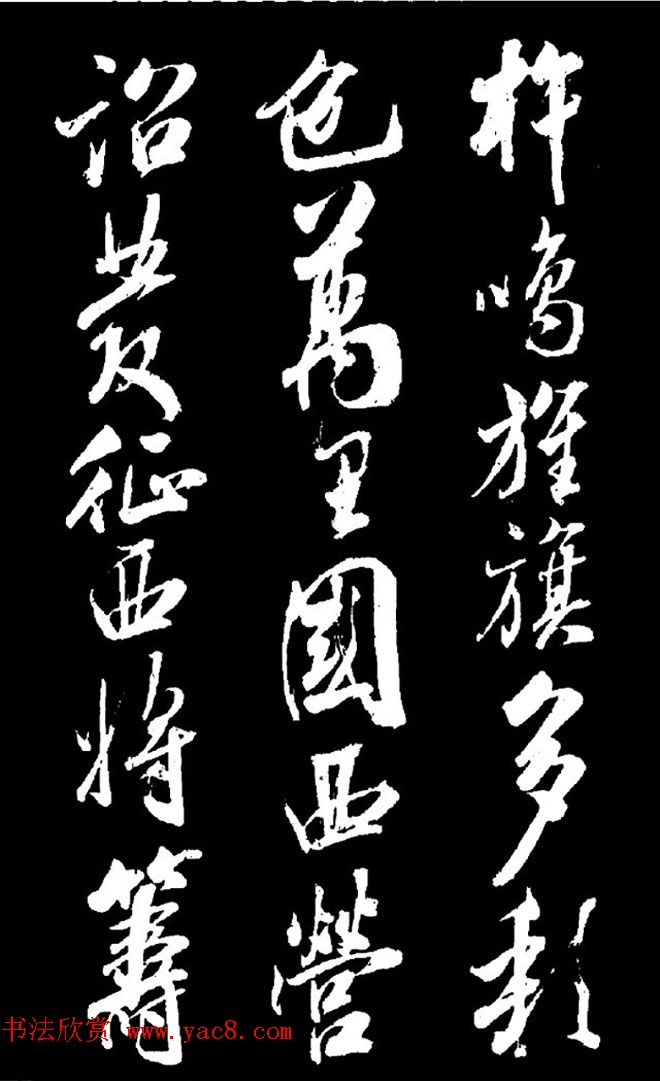 鳴旌旗多
色萬里國西營
詔發征西將籌
书法欣赏 www.yac8.com